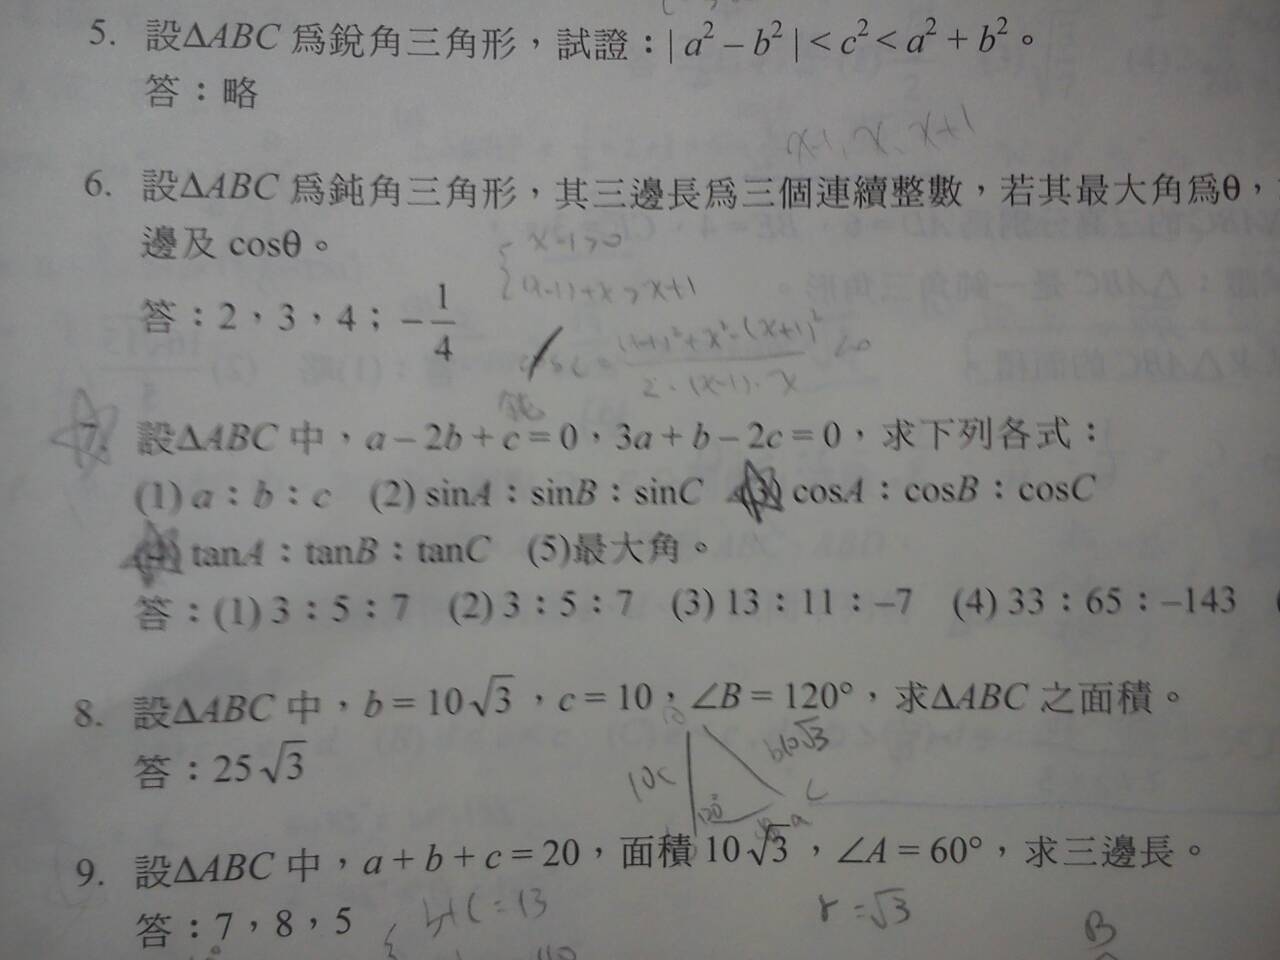 5. 設ΔABC 為銳角三角形，試證：| a² – b² | < c² < a² + b²。
答：略
x-1, x, x+1
6. 設ΔABC 為鈍角三角形，其三邊長為三個連續整數，若其最大角為θ，
邊及 cosθ。
x-1>0
(x-1)+x>x+1
答：2，3，4；–1/4
鈍
7. 設ΔABC 中，a – 2b + c = 0，3a + b – 2c = 0，求下列各式：
(1) a：b：c (2) sinA：sinB：sinC (3) cosA：cosB：cosC
(4) tanA：tanB：tanC (5)最大角。
答：(1) 3：5：7 (2) 3：5：7 (3) 13：11：–7 (4) 33：65：–143
8. 設ΔABC 中，b = 10√3，c = 10，∠B = 120°，求ΔABC 之面積。
答：25√3
10c 120° a b10√3 C
9. 設ΔABC 中，a + b + c = 20，面積 10√3，∠A = 60°，求三邊長。
答：7，8，5
b+c=13
r=√3
B